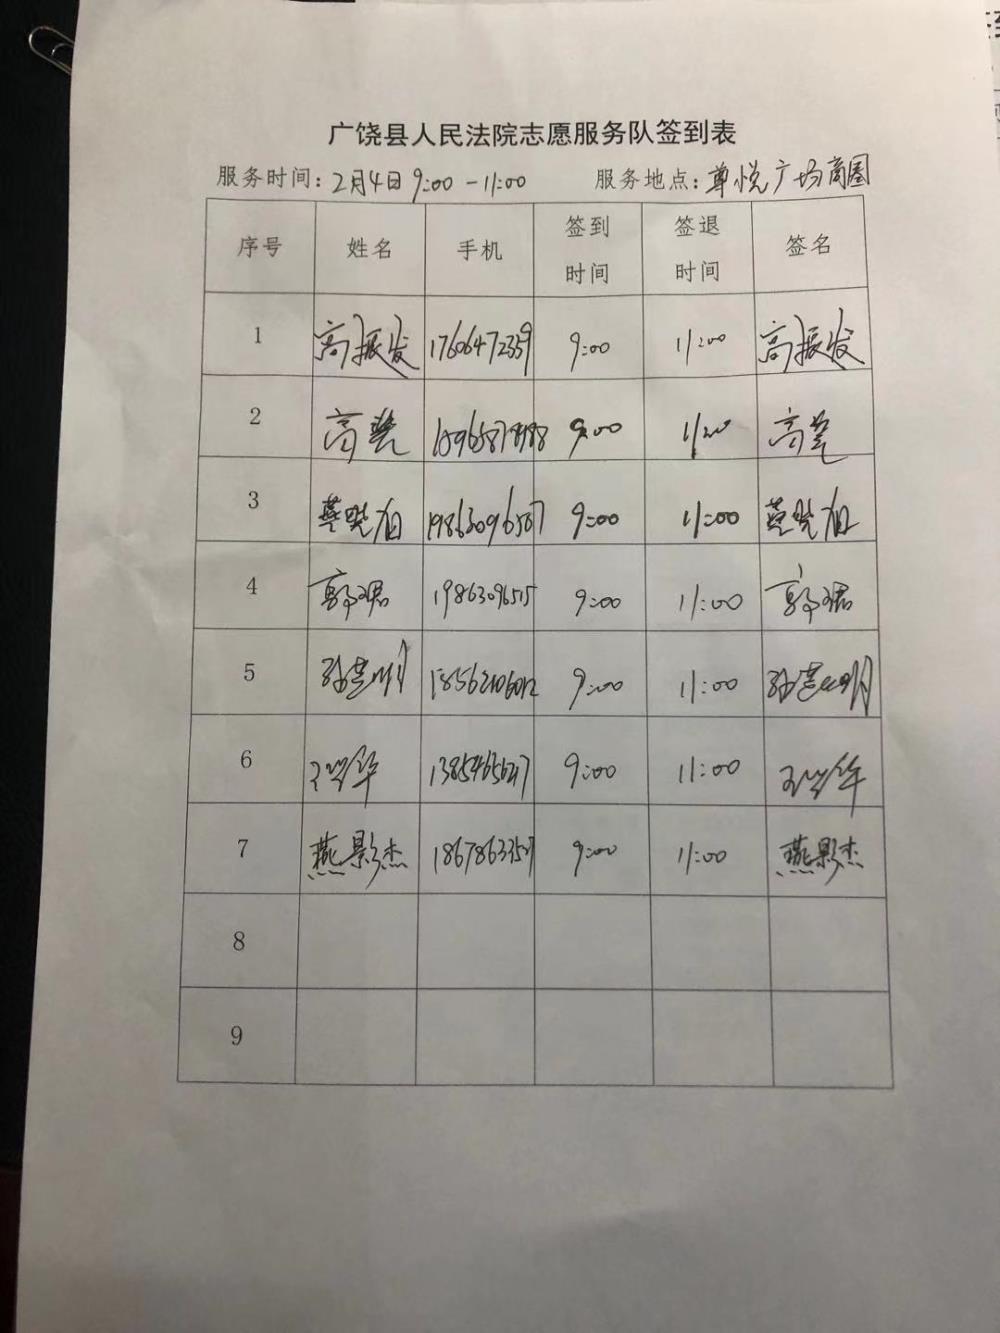 广饶县人民法院志愿服务队签到表
服务时间：2月4日 9:00-11:00 服务地点：尊悦广场商圈
序号 姓名 手机 签到时间 签退时间 签名
1 高振发 17606472359 9:00 11:00 高振发
2 高 9:00 11:00 高
3 19863096507 9:00 11:00
4 郭珺 19863096515 9:00 11:00 郭珺
5 18562106012 9:00 11:00
6 13854656217 9:00 11:00
7 燕影杰 18678633507 9:00 11:00 燕影杰
8
9